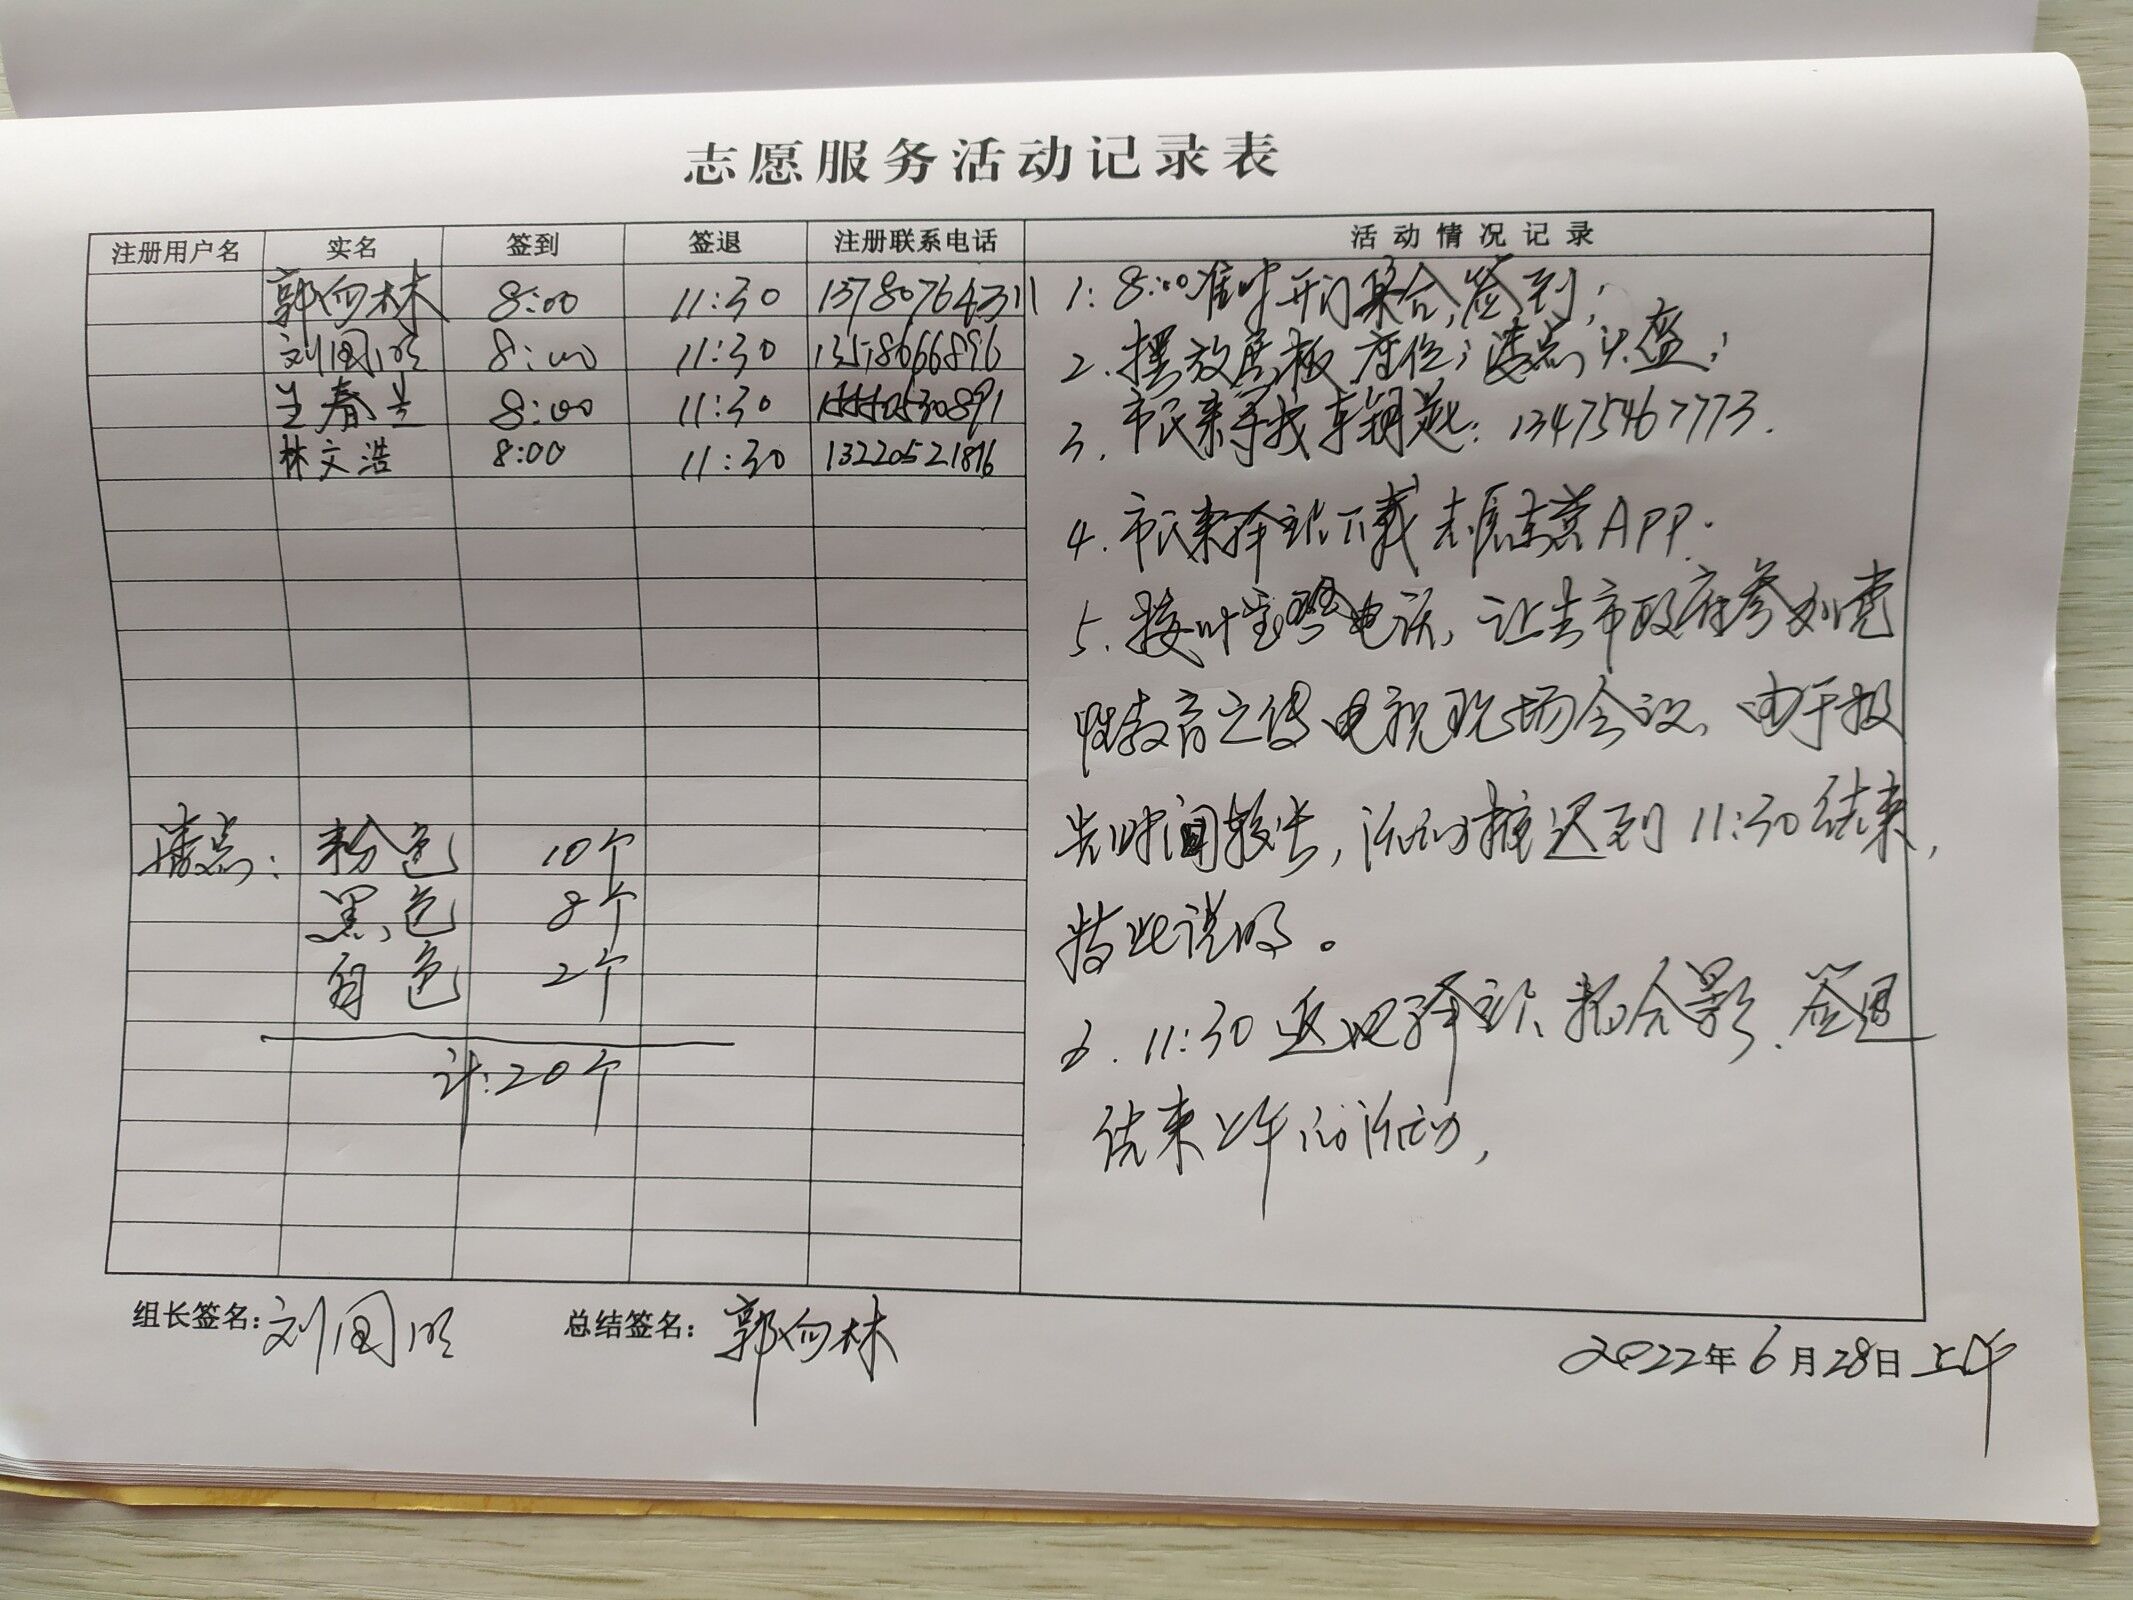 志愿服务活动记录表
注册用户名 实名 签到 签退 注册联系电话 活动情况记录
郭向林 8:00 11:30 13780764311
刘国明 8:00 11:30
春兰 8:00 11:30
林文浩 8:00 11:30 13220521876
1: 8:00准时开门集合,签到;
2. 摆放展板座位;清点头盔;
3. 市民来寻找车钥匙: 13475467773.
4. 市民来驿站下载志愿东营APP.
5. 接叶宝 电话, 让去市政府参加党
性教育宣传电视现场会议, 由于报
告时间较长, 活动推迟到11:30结束,
特此说明。
6. 11:30返回驿站、拍合影、签退
结束上午的活动,
清点: 粉色 10个
黑色 8个
白色 2个
计:20个
组长签名:刘国明 总结签名:郭向林
2022年6月28日上午